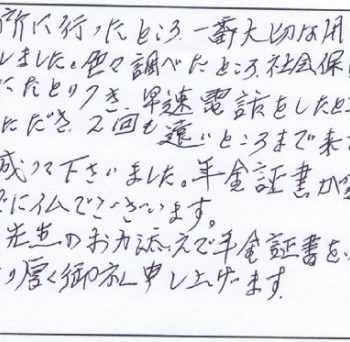 所に行ったところ、一番大切な用
しました。色々調べたところ、社会保
にたどりつき、早速電話をしたとこ
ただき、2回も遠いところまで来て
成して下さいました。年金証書が
に仏でございます。
先生のお力添えで年金証書を
り厚く御礼申し上げます。